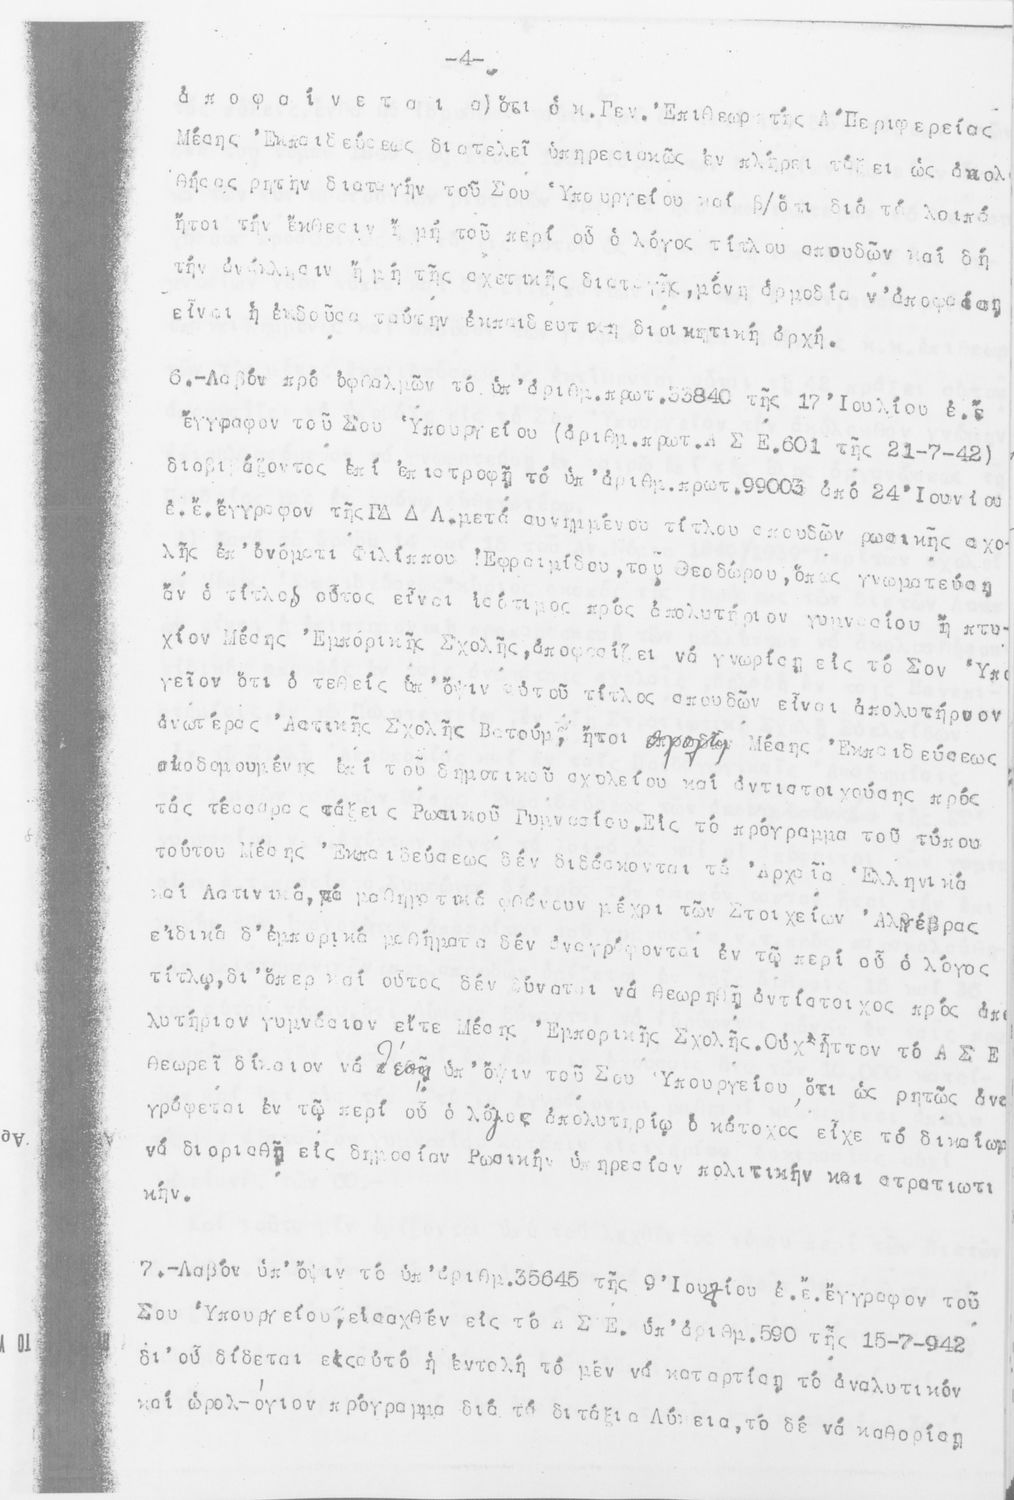 -4-
ἀ π ο φ α ί ν ε τ α ι α)ὅτι ὁ κ.Γεν.Ἐπιθεωρητής Α΄Περιφερείας
Μέσης Ἐκπαιδεύσεως διατελεῖ ὑπηρεσιακῶς ἐν πλήρει τάξει ὡς ἀκολ
θήσας ρητήν διαταγήν τοῦ Σου Ὑπουργείου καί β/ὅτι διά τά λοιπά
ἤτοι τήν ἔκθεσιν ἤ μή τοῦ περί οὗ ὁ λόγος τίτλου σπουδῶν καί δή
τήν ἀνάκλησιν ἤ μή τῆς σχετικῆς διαταγῆς,μόνη ἁρμοδία ν'ἀποφασίσῃ
εἶναι ἡ ἐκδοῦσα ταύτην ἐκπαιδευτική διοικητική ἀρχή.
6.-Λαβόν πρό ὀφθαλμῶν τό ὑπ'ἀριθμ.πρωτ.53840 τῆς 17 Ἰουλίου ἐ.ἔ
ἔγγραφον τοῦ Σου Ὑπουργείου (ἀριθμ.πρωτ.Α Σ Ε.601 τῆς 21-7-42)
διαβιβάζοντος ἐπί ἐπιστροφῇ τό ὑπ'ἀριθμ.πρωτ.99003 ἀπό 24 Ἰουνίου
ἐ.ἔ.ἔγγραφον τῆς ΓΔ Δ Λ.μετά συνημμένου τίτλου σπουδῶν ρωσικῆς σχο-
λῆς ἐπ'ὀνόματι Φιλίππου Ἐφραιμίδου,τοῦ Θεοδώρου,ὅπως γνωματεύσῃ
ἄν ὁ τίτλος οὗτος εἶναι ἰσότιμος πρός ἀπολυτήριον γυμνασίου ἤ πτυ-
χίον Μέσης Ἐμπορικῆς Σχολῆς,ἀποφασίζει νά γνωρίσῃ εἰς τό Σον Ὑπο
γεῖον ὅτι ὁ τεθείς ὑπ'ὄψιν αὐτοῦ τίτλος σπουδῶν εἶναι ἀπολυτήριον
ἀνωτέρας Ἀστικῆς Σχολῆς Βατούμ, ἤτοι Μέσης Ἐκπαιδεύσεως
οἰκοδομουμένης ἐπί τοῦ δημοτικοῦ σχολείου καί ἀντιστοιχούσης πρός
τάς τέσσαρας τάξεις Ρωσικοῦ Γυμνασίου.Εἰς τό πρόγραμμα τοῦ τύπου
τούτου Μέσης Ἐκπαιδεύσεως δέν διδάσκονται τά Ἀρχαῖα Ἑλληνικά
καί Λατινικά,τά μαθηματικά φθάνουν μέχρι τῶν Στοιχείων Ἀλγέβρας
εἰδικά δ'ἐμπορικά μαθήματα δέν ἀναγράφονται ἐν τῷ περί οὗ ὁ λόγος
τίτλῳ,δι'ὅπερ καί οὗτος δέν δύναται νά θεωρηθῇ ἀντίστοιχος πρός ἀπο
λυτήριον γυμνάσιον εἴτε Μέσης Ἐμπορικῆς Σχολῆς.Οὐχ'ἧττον τό Α Σ Ε
θεωρεῖ δίκαιον νά θέσῃ ὑπ'ὄψιν τοῦ Σου Ὑπουργείου,ὅτι ὡς ρητῶς ἀνα
γράφεται ἐν τῷ περί οὗ ὁ λόγος ἀπολυτηρίῳ ὁ κάτοχος εἶχε τό δικαίωμ
νά διορισθῇ εἰς δημοσίαν Ρωσικήν ὑπηρεσίαν πολιτικήν και στρατιωτι
κήν.
7.-Λαβόν ὑπ'ὄψιν τό ὑπ'ἀριθμ.35645 τῆς 9 Ἰουλίου ἐ.ἔ.ἔγγραφον τοῦ
Σου Ὑπουργείου,εἰσαχθέν εἰς τό Α Σ Ε. ὑπ'ἀριθμ.590 τῆς 15-7-942
δι'οὗ δίδεται εἰς αὐτό ἡ ἐντολή τό μέν νά καταρτίσῃ τό ἀναλυτικόν
καί ὡρολ-όγιον πρόγραμμα διά τά διτάξια Λύκεια,τό δέ νά καθορίσῃ